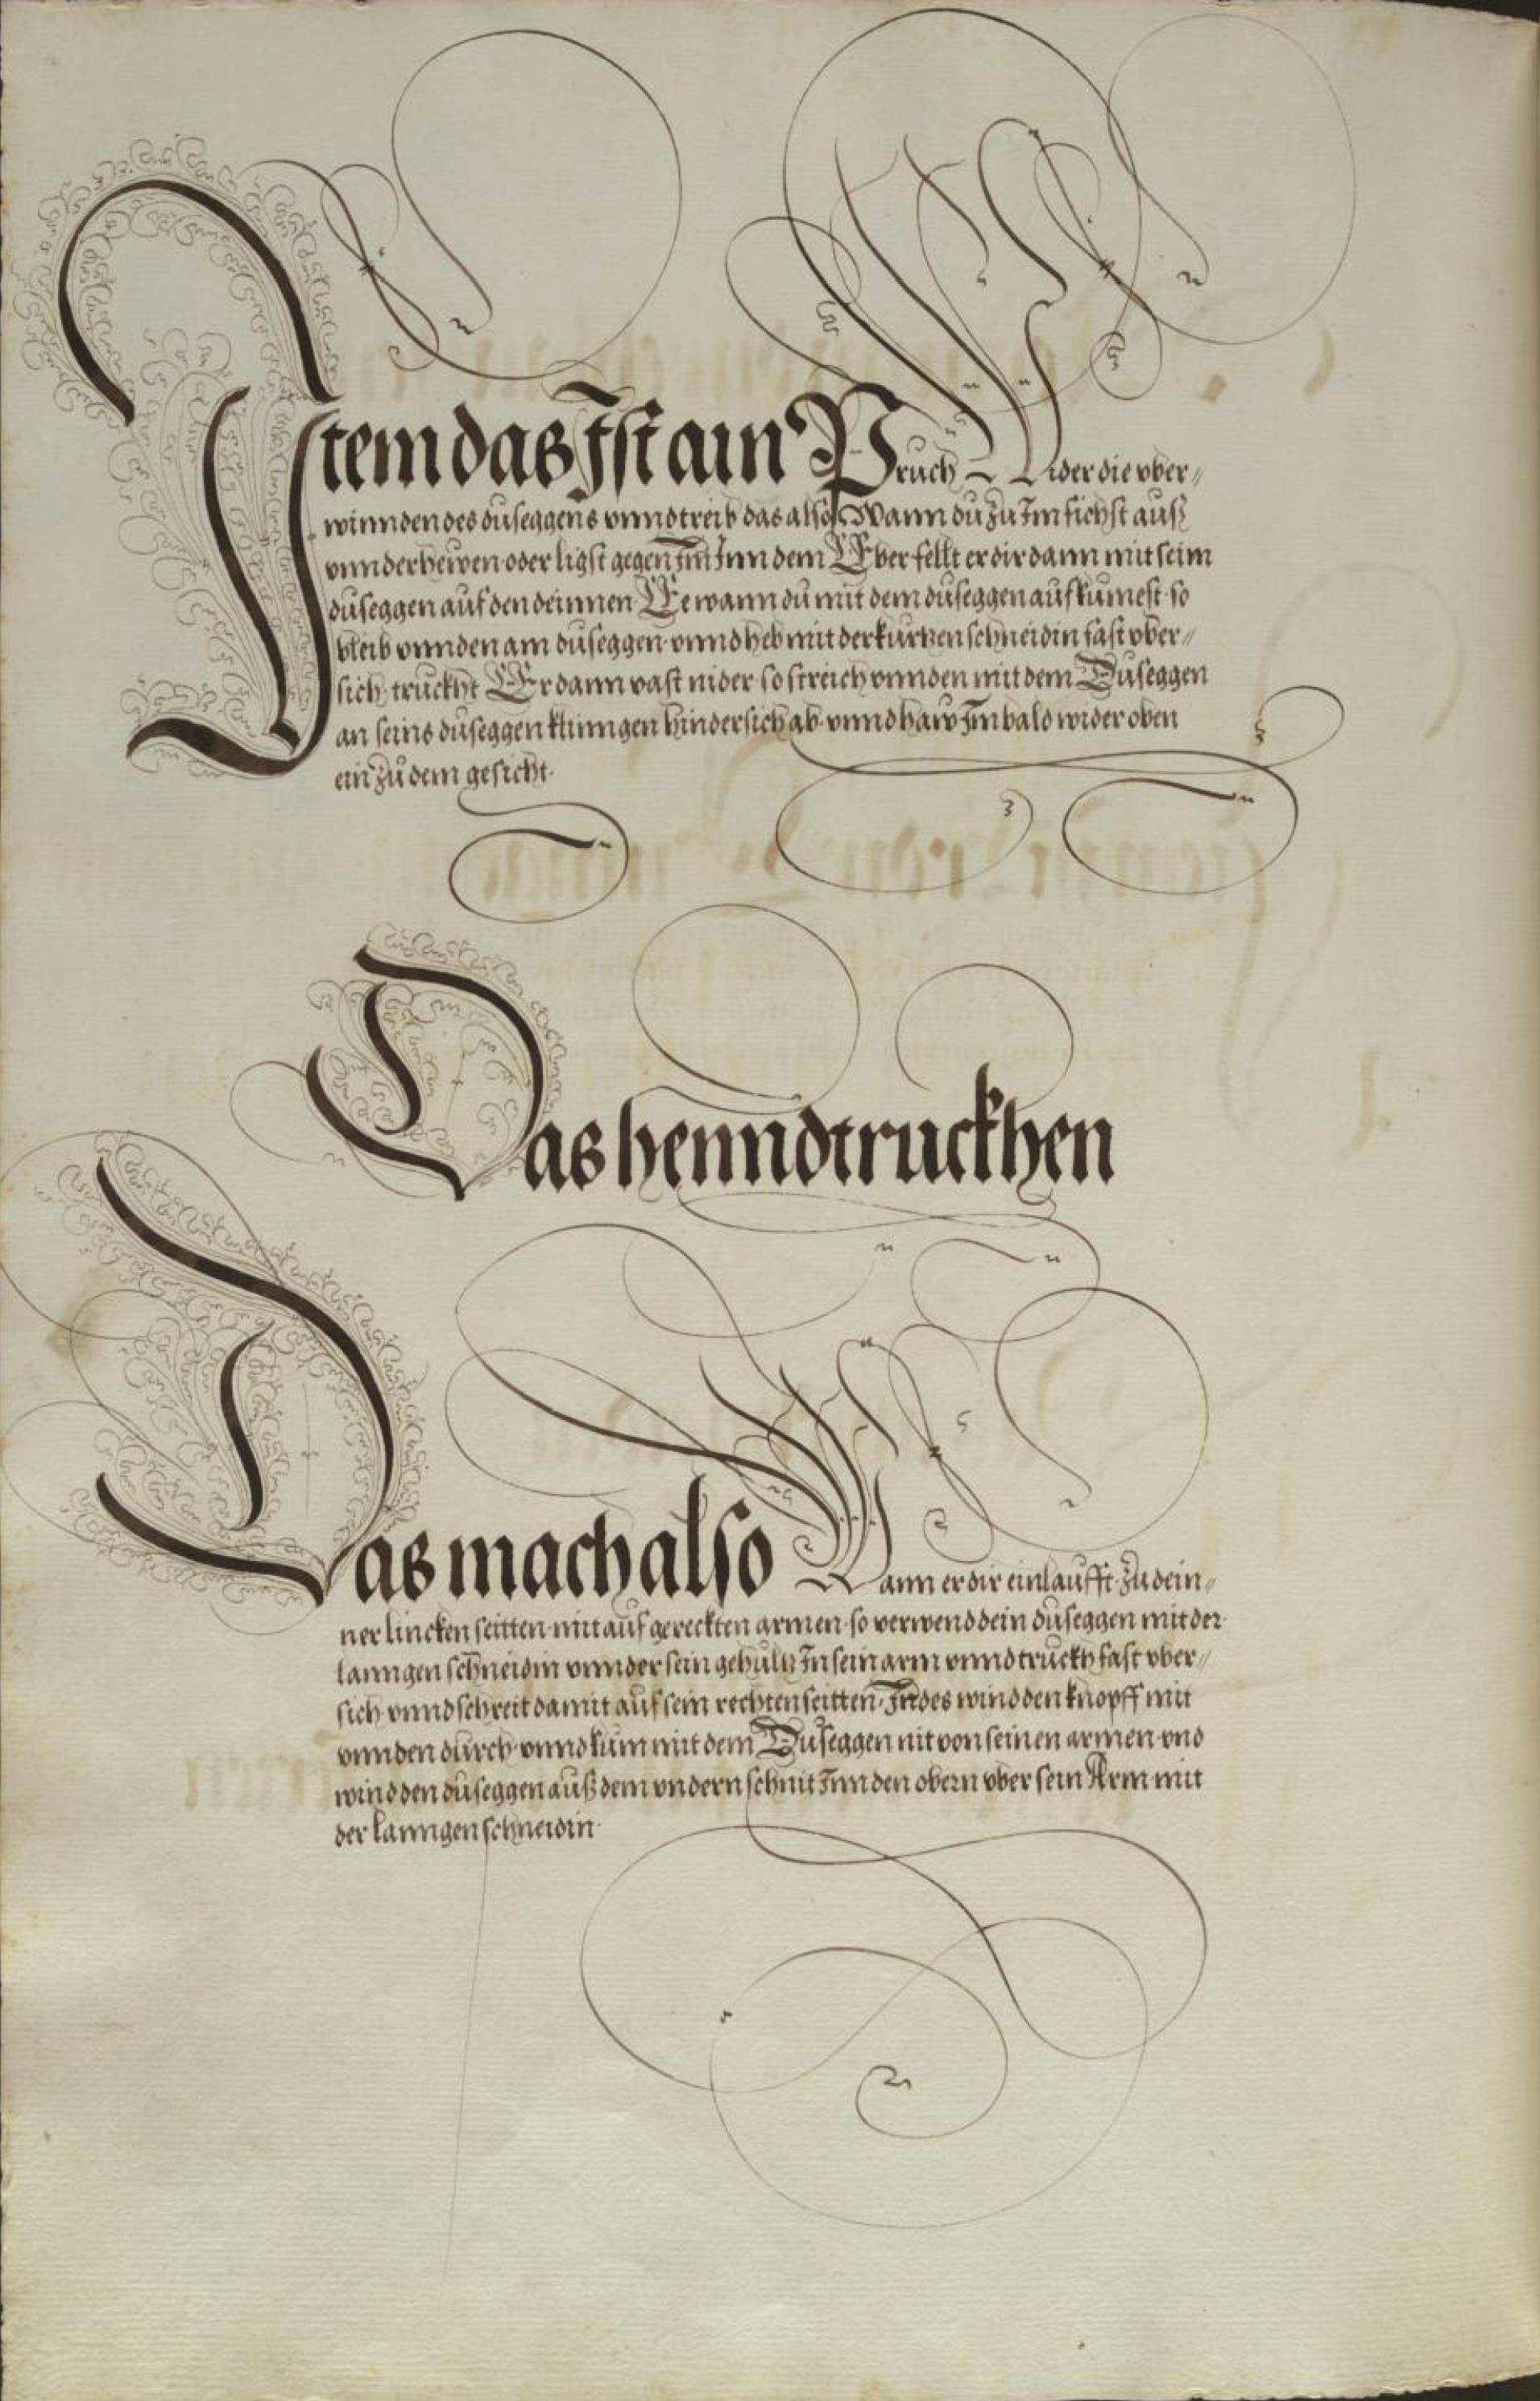 Item das Ist ain Pruch Wider die vber〃
winnden des duseggens vnnd treib das also Wann du zu Im fichst auß
vnnderhewen oder ligst gegen Im Inn dem Eber fellt er dir dann mit seim
duseggen auf den deinnen Ee wann du mit dem duseggen auf kumest so
bleib vnnden am duseggen vnnd heb mit der kurtzen schneidin fast vber〃
sich truckht Er dann vast nider so streich vnnden mit dem Duseggen
an seins duseggen klinngen hindersich ab vnnd haw Im bald wider oben
ein zu dem gesicht.
Das henndtruckhen
Das mach also Wann er dir einlaufft zu dein〃
ner lincken seitten mit auf gereckten armen so verwend dein duseggen mit der
lanngen schneidin vnnder sein gehultz In sein arm vnnd truckh fast vber〃
sich vnnd schreit damit auf sein rechten seitten Indes wind den knopff mit
vnnden durch vnnd kum mit dem Duseggen nit von seinen armen vnd
wind den duseggen auß dem vndern schnit Inn den obern vber sein Arm mit
der lanngen schneidin